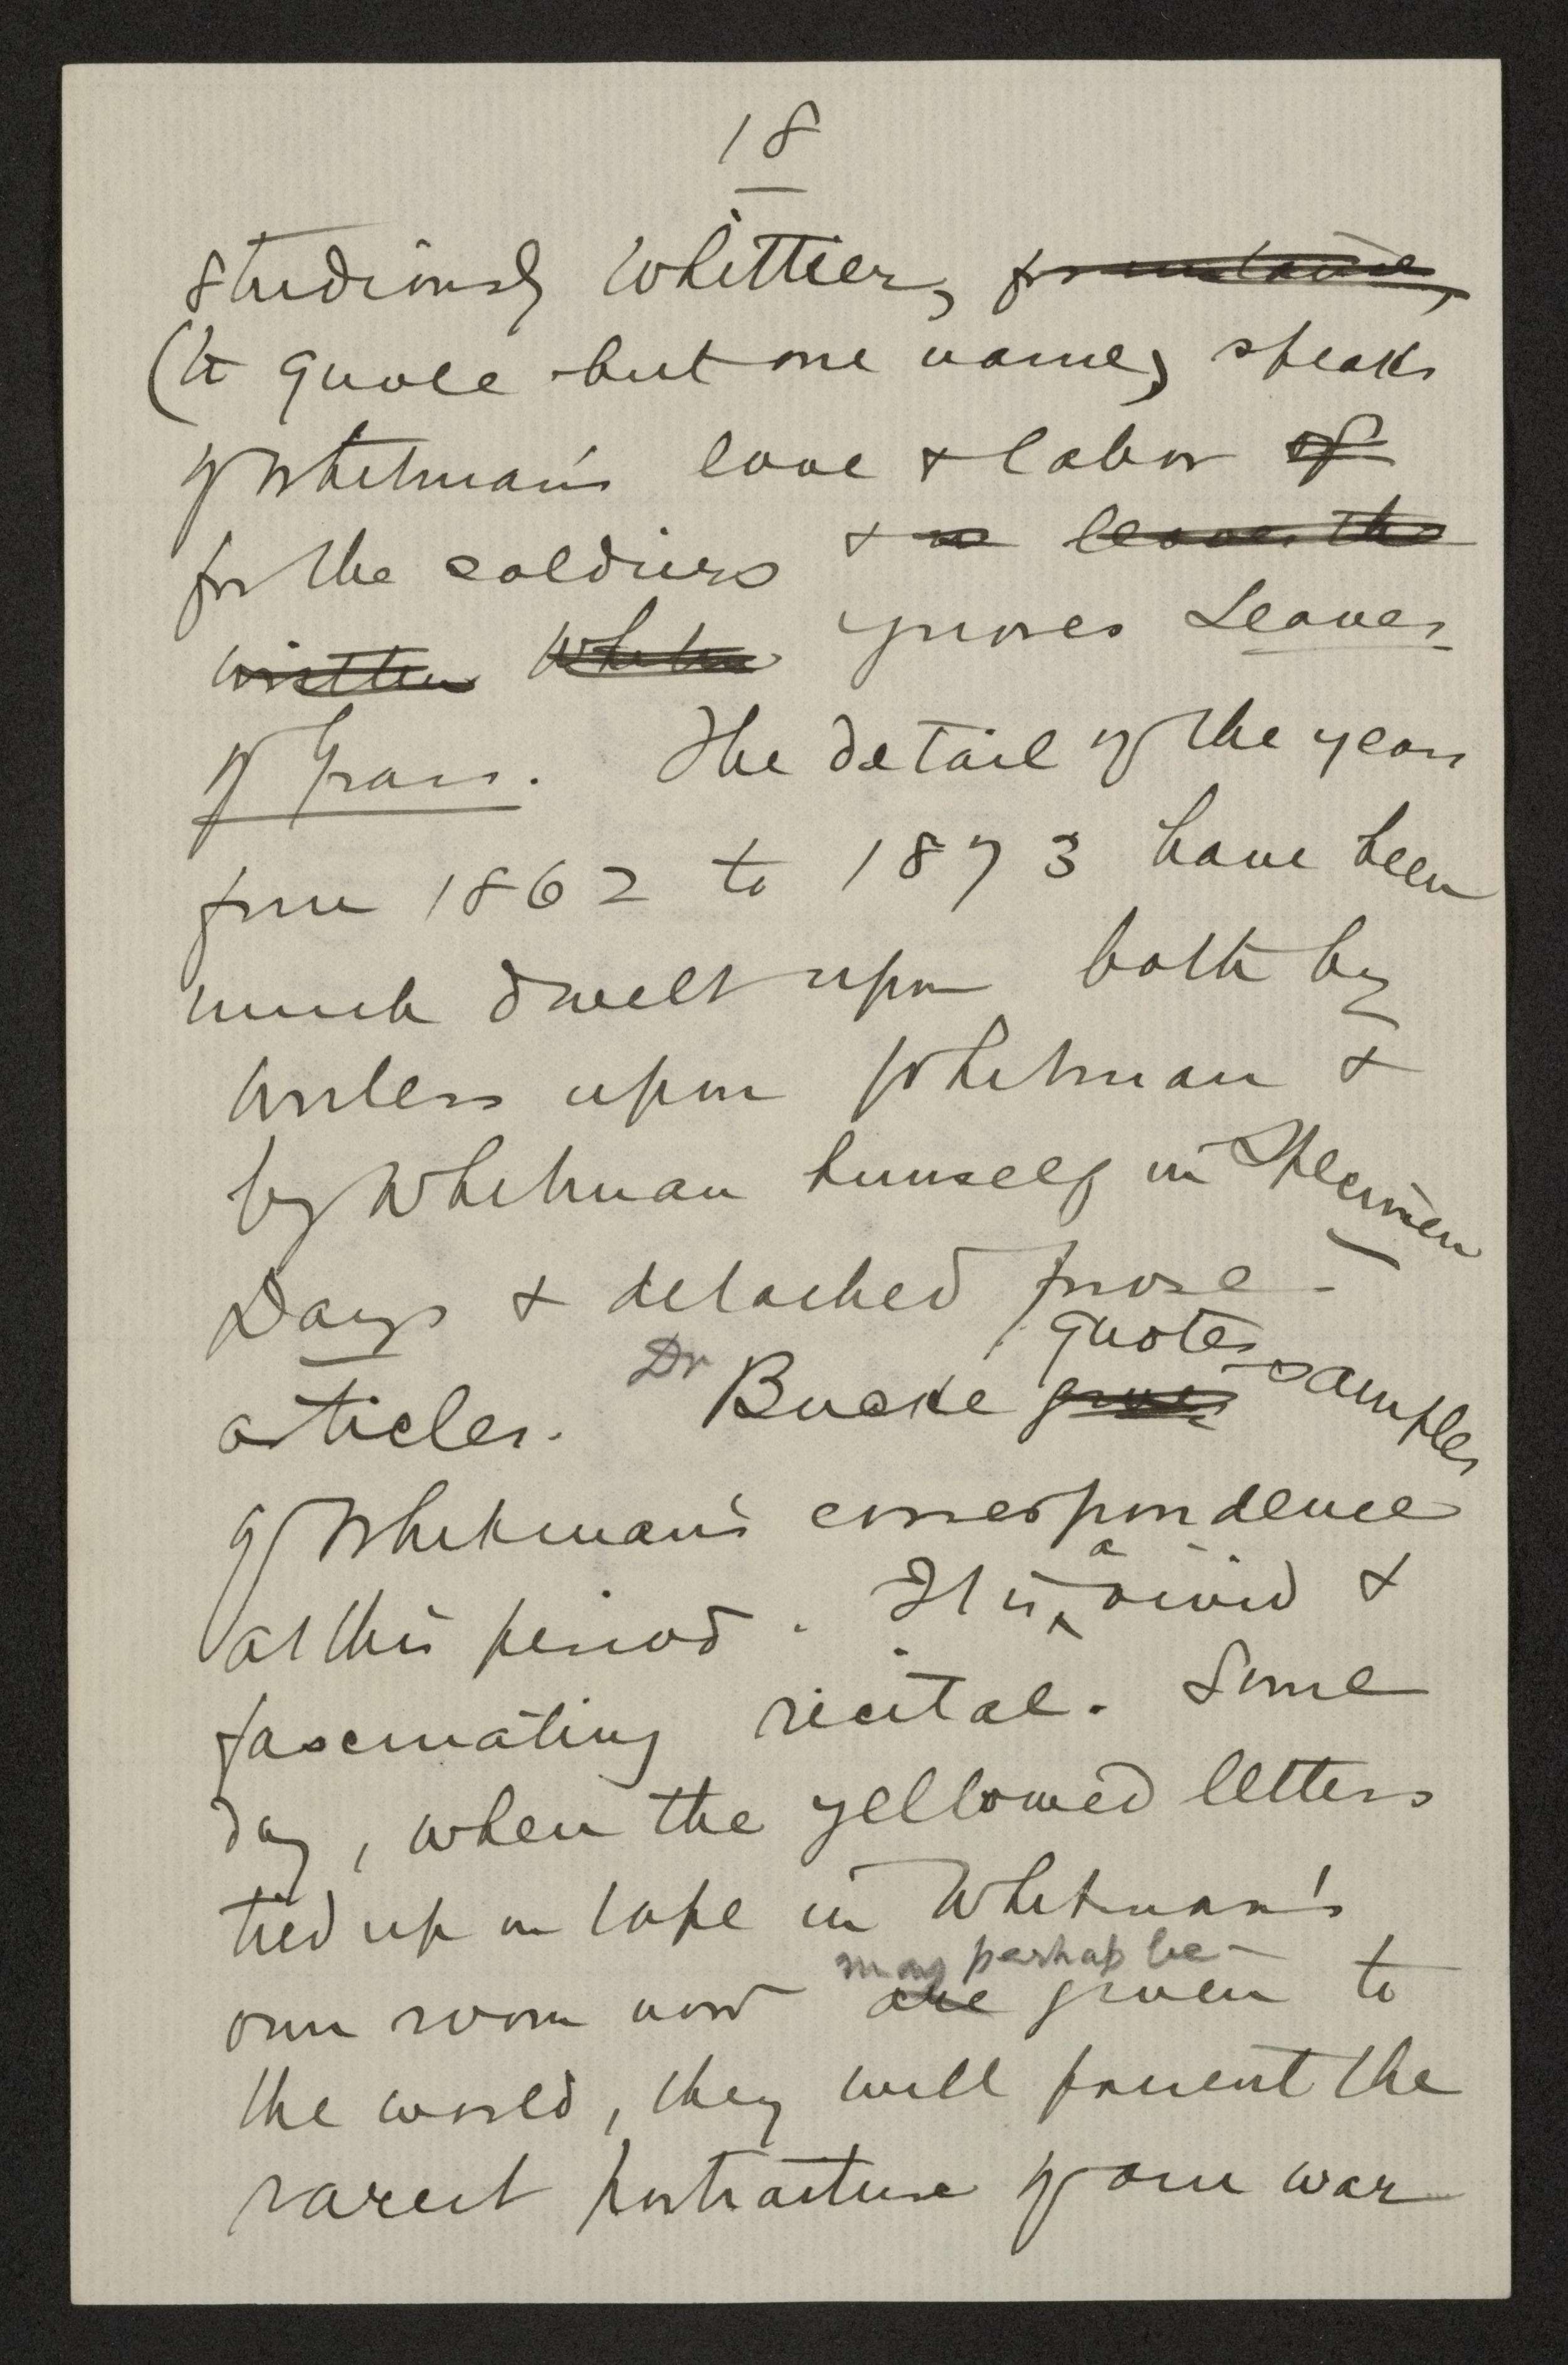 18
studiously Whittier, for instance,
(to quote but one name) speaks
of Whitman's love & labor of
for the soldiers & leaves the
written ignores Leaves
of Grass. The detail of the years
from 1862 to 1873 have been
much dwelt upon both by
writers upon Whitman &
by Whitman himself in Specimen
Days & detached prose
articles. Dr Bucke gives quotes samples
of Whitman's correspondence
at this period. It is a vivid &
fascinating recital. Some
day, when the yellowed letters
tied up in tape in Whitman's
own room now are may perhap be given to
the world, they will present the
rarest portraiture of our war